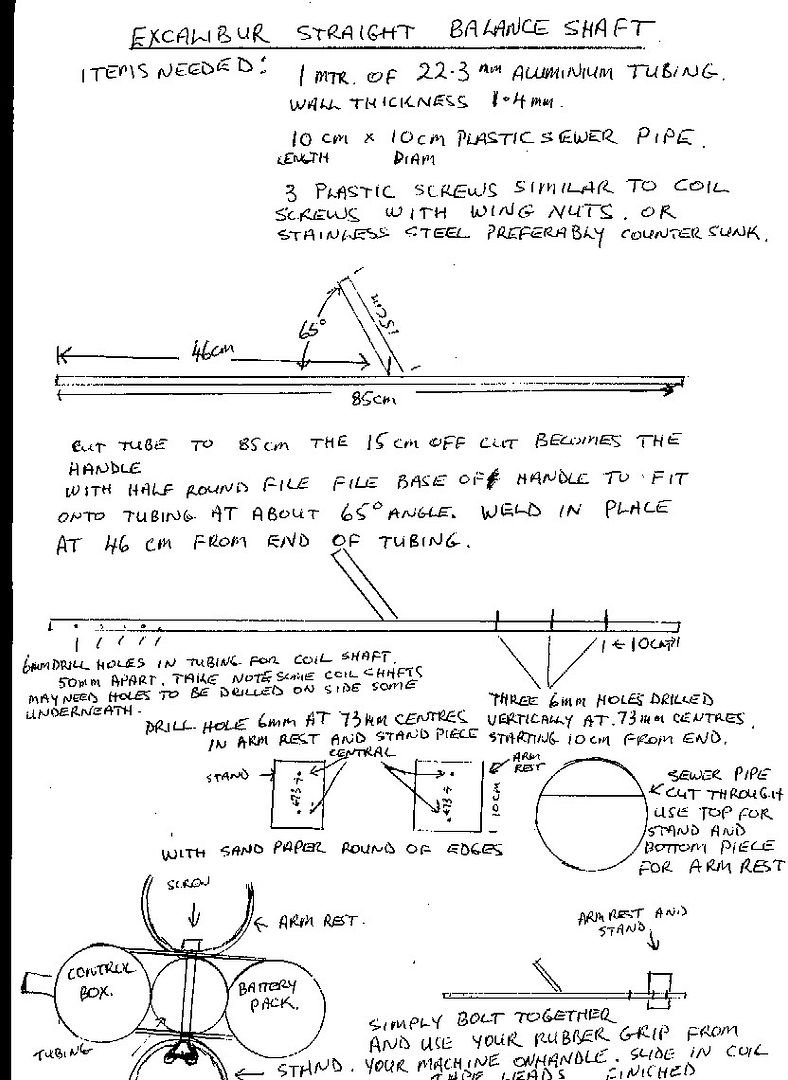 EXCALIBUR STRAIGHT BALANCE SHAFT
ITEMS NEEDED:
1 MTR. OF 22.3 MM ALUMINIUM TUBING.
WALL THICKNESS 1.4mm.
10 cm x 10cm PLASTIC SEWER PIPE.
LENGTH DIAM
3 PLASTIC SCREWS SIMILAR TO COIL
SCREWS WITH WING NUTS. OR
STAINLESS STEEL PREFERABLY COUNTER SUNK.
65°
15cm
46cm
85cm
CUT TUBE TO 85cm THE 15cm OFF CUT BECOMES THE
HANDLE
WITH HALF ROUND FILE FILE BASE OF HANDLE TO FIT
ONTO TUBING AT ABOUT 65° ANGLE. WELD IN PLACE
AT 46 CM FROM END OF TUBING.
10cm
6mm DRILL HOLES IN TUBING FOR COIL SHAFT.
50mm APART. TAKE NOTE SOME COIL SHAFTS
MAY NEED HOLES TO BE DRILLED ON SIDE SOME
UNDERNEATH.
THREE 6mm HOLES DRILLED
VERTICALLY AT 73mm CENTRES.
STARTING 10cm FROM END.
DRILL HOLE 6mm AT 73mm CENTRES
IN ARM REST AND STAND PIECE
CENTRAL
STAND
73
73
10cm
ARM
REST
SEWER PIPE
CUT THROUGH
USE TOP FOR
STAND AND
BOTTOM PIECE
FOR ARM REST
WITH SAND PAPER ROUND OF EDGES
SCREW
ARM REST.
CONTROL
BOX.
BATTERY
PACK.
TUBING
STAND.
ARM REST AND
STAND
SIMPLY BOLT TOGETHER
AND USE YOUR RUBBER GRIP FROM
YOUR MACHINE ON HANDLE. SLIDE IN COIL
TAPE LEADS FINISHED